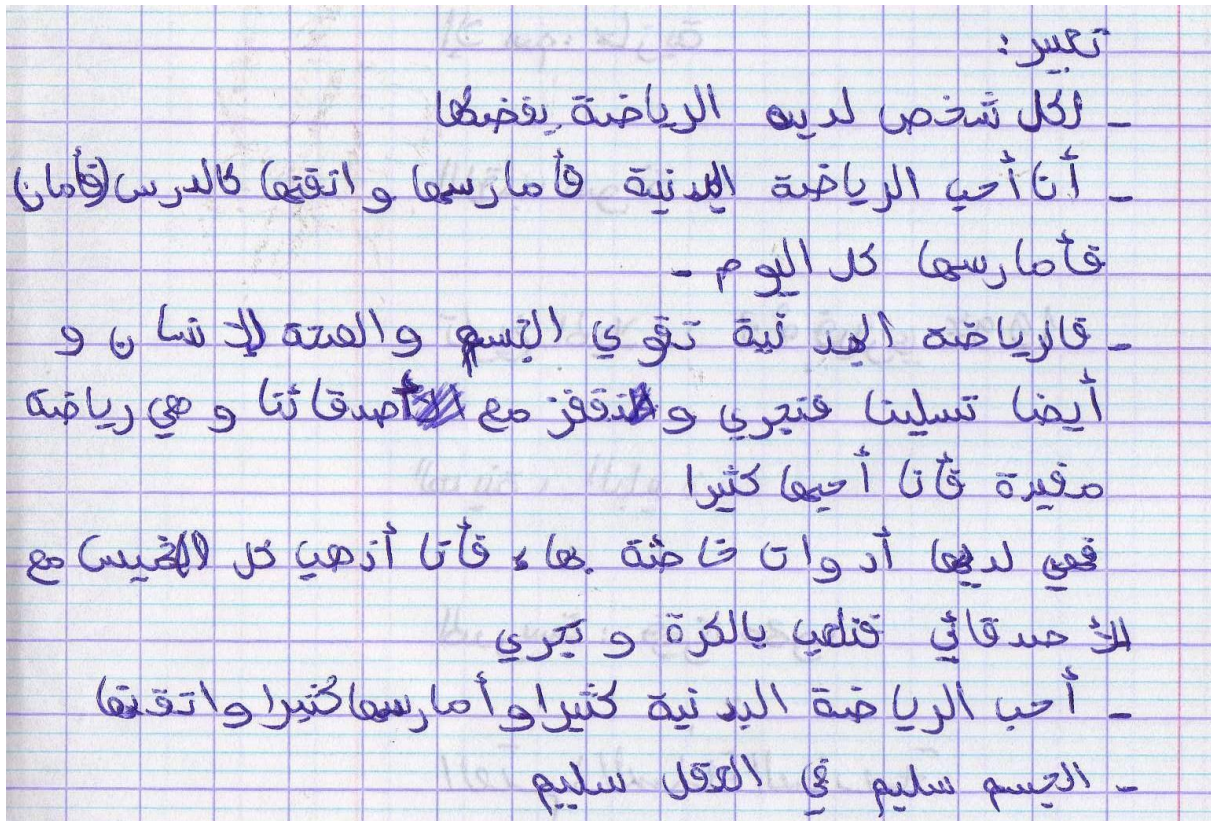 تعبير :
- لكل شخص لديه الرياضة يفضلها
- أنا أحب الرياضة البدنية فأمارسها واتقنها كالدرس (فأمان)
فأمارسها كل اليوم -
- فالرياضة البدنية تقوي الجسم والصحة للإنسان و
أيضا تسلينا فنجري ونقفز مع أصدقائنا وهي رياضة
مفيدة فأنا أحبها كثيرا
فهي لديها أدوات خاصة بها، فأنا أذهب كل الخميس مع
أصدقائي فنلعب بالكرة ونجري
- أحب الرياضة البدنية كثيرا وأمارسها كثيرا واتقنها
- الجسم سليم في العقل سليم